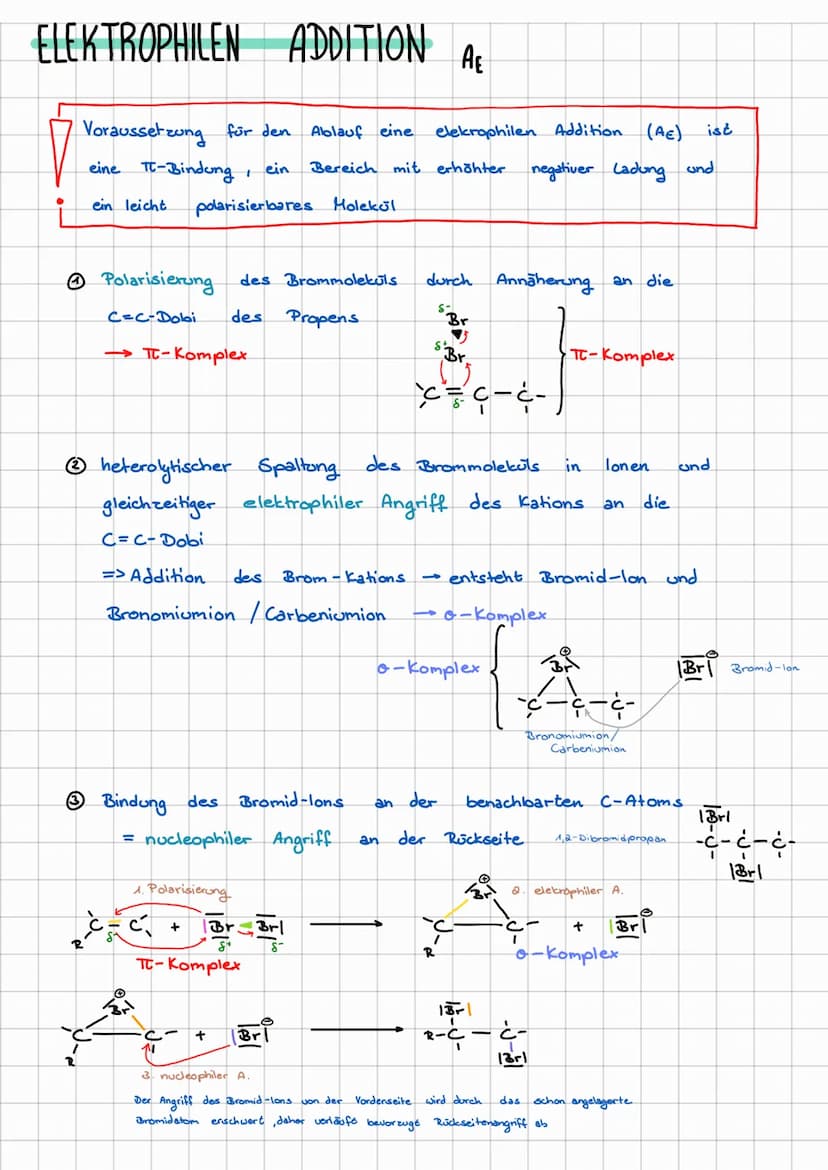 ELEKTROPHILEN ADDITION AE
Voraussetzung für den Ablauf eine elekrophilen Addition (AE) ist
eine π-Bindung, ein Bereich mit erhöhter negativer Ladung und
ein leicht polarisierbares Molekül
① Polarisierung des Brommoleküls durch Annäherung an die
C=C-Dobi des Propens
→ π-Komplex
δ-
Br
δ+
Br
C=C-C-
δ-
π-Komplex
② heterolytischer Spaltung des Brommoleküls in Ionen und
gleichzeitiger elektrophiler Angriff des Kations an die
C=C-Dobi
=> Addition des Brom-Kations → entsteht Bromid-Ion und
Bronomiumion / Carbeniumion → σ-Komplex
σ-Komplex
⊕
Br
C-C-C-
Bronomiumion/
Carbeniumion
|Br| ⊖ Bromid-Ion
③ Bindung des Bromid-Ions an der benachbarten C-Atoms
= nucleophiler Angriff an der Rückseite 1,2-Dibromidpropan
|Br|
-C-C-C-
|Br|
1. Polarisierung
R C=C + |Br-Br| →
δ- δ+ δ-
π-Komplex
⊕
Br 2. elektrophiler A.
C-C- + |Br| ⊖
R
σ-Komplex
⊕
Br
C-C- + |Br| ⊖ →
R
3. nucleophiler A.
|Br|
R-C-C-
|Br|
Der Angriff des Bromid-Ions von der Vorderseite wird durch das schon angelagerte
Bromidatom erschwert, daher verläufe bevorzugt Rückseitenangriff ab